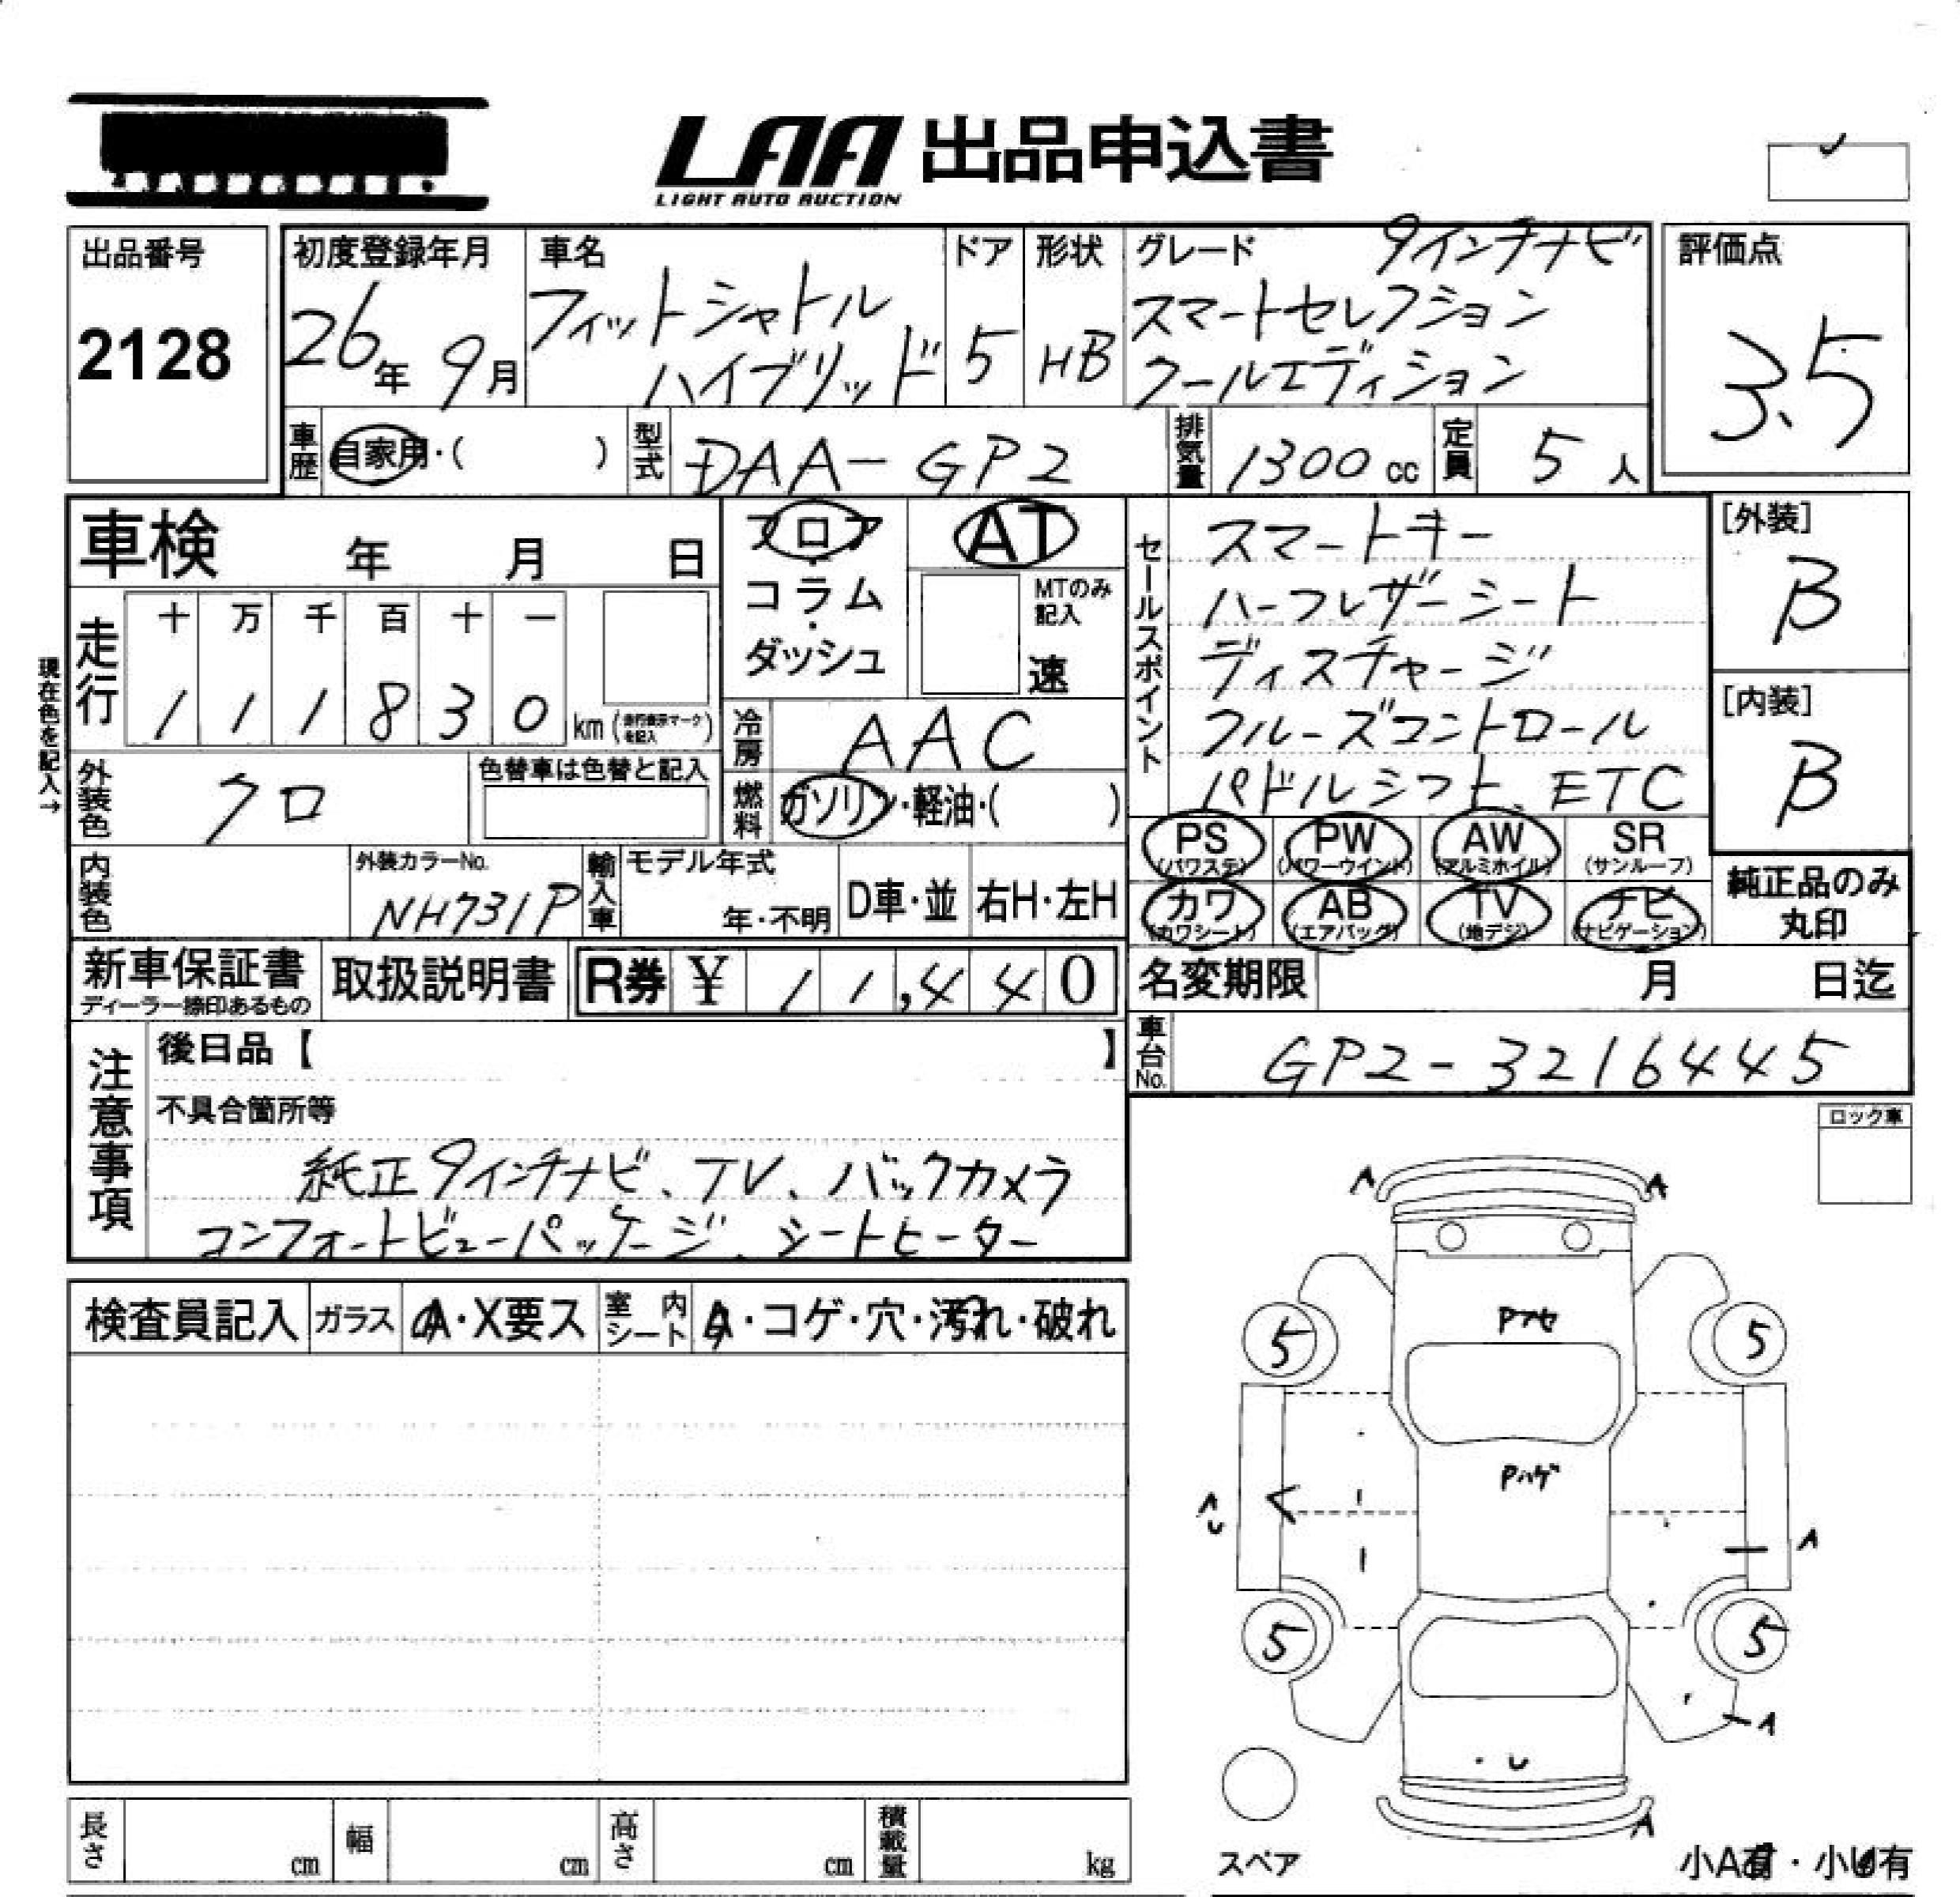 LAA 出品申込書
LIGHT AUTO AUCTION
出品番号
2128
初度登録年月
26年 9月
車名
フィットシャトル
ハイブリッド
ドア
5
形状
HB
グレード
9インチナビ
スマートセレクション
クールエディション
評価点
3.5
車歴
自家用・( )
型式
DAA-GP2
排気量
1300 cc
定員
5 人
車検 年 月 日
フロア
・
コラム
・
ダッシュ
AT
MTのみ
記入
速
現在色を記入→
走行
十 万 千 百 十 一
1 1 1 8 3 0 km (走行表示マークを記入)
冷房
AAC
外装色
クロ
色替車は色替と記入
燃料
ガソリン・軽油・( )
内装色
外装カラーNo.
NH731P
輸入車
モデル年式
年・不明
D車・並
右H・左H
セールスポイント
スマートキー
ハーフレザーシート
ディスチャージ
クルーズコントロール
パドルシフト、ETC
[外装]
B
[内装]
B
PS (パワステ)
PW (パワーウインド)
AW (アルミホイル)
SR (サンルーフ)
カワ (カワシート)
AB (エアバッグ)
TV (地デジ)
ナビ (ナビゲーション)
純正品のみ
丸印
新車保証書
ディーラー捺印あるもの
取扱説明書
R券 ¥ 11,440
名変期限 月 日迄
車台No.
GP2-3216445
注意事項
後日品【 】
不具合箇所等
純正9インチナビ、TV、バックカメラ
コンフォートビューパッケージ、シートヒーター
ロック車
検査員記入
ガラス
A・X要ス
室内シート
A・コゲ・穴・汚れ・破れ
A
A
Pアセ
5
5
Pハゲ
A
U
A
5
5
A
U
A
スペア
小A有・小U有
長さ cm
幅 cm
高さ cm
積載量 kg